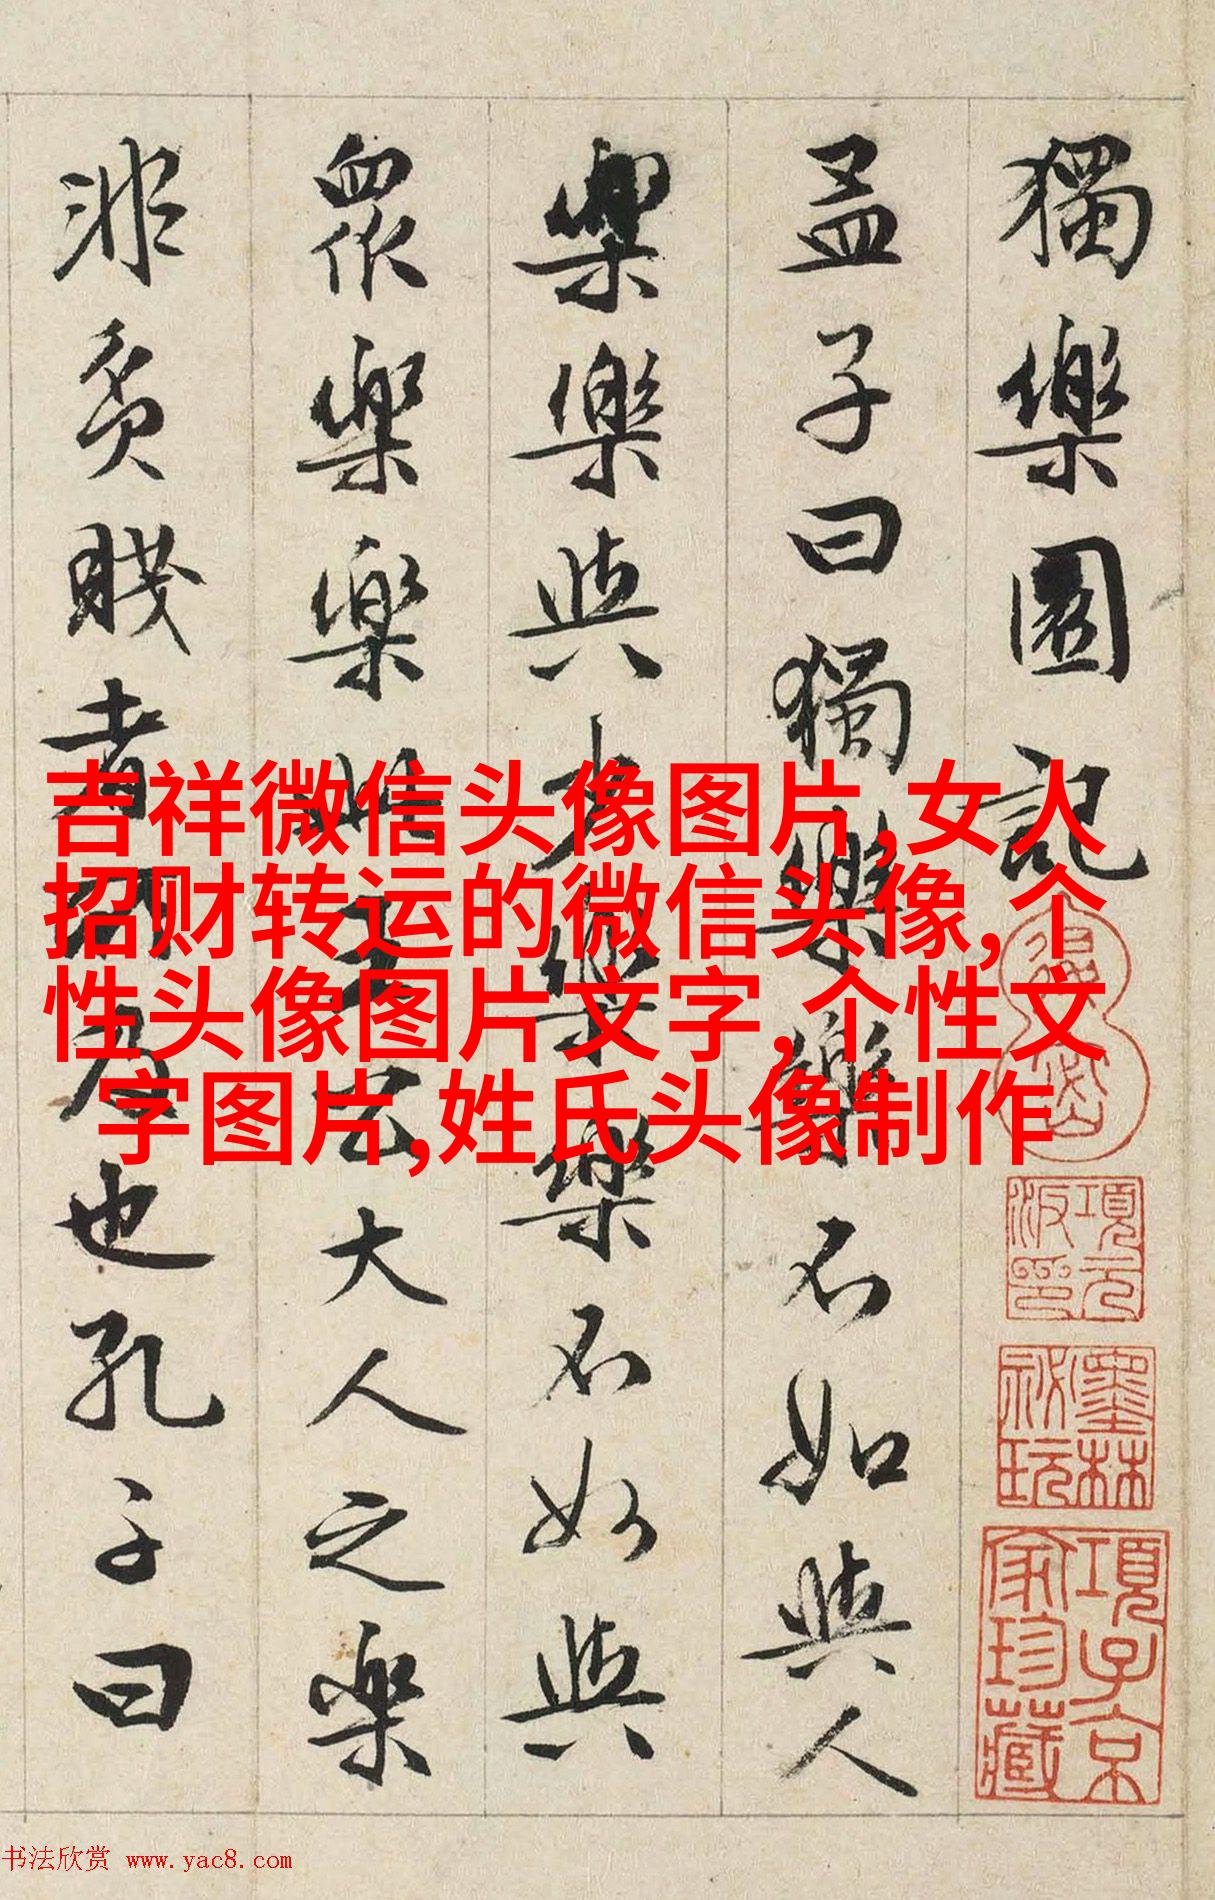 獨樂園記
孟子曰獨樂樂不如與人
樂樂與少樂樂不如與
眾樂樂此王公大人之樂
非貧賤者所及也孔子曰
吉祥微信头像图片,女人
招财转运的微信头像,个
性头像图片文字,个性文
字图片,姓氏头像制作
項元汴印
墨林祕玩
項子京家珍藏
书法欣赏 www.yac8.com